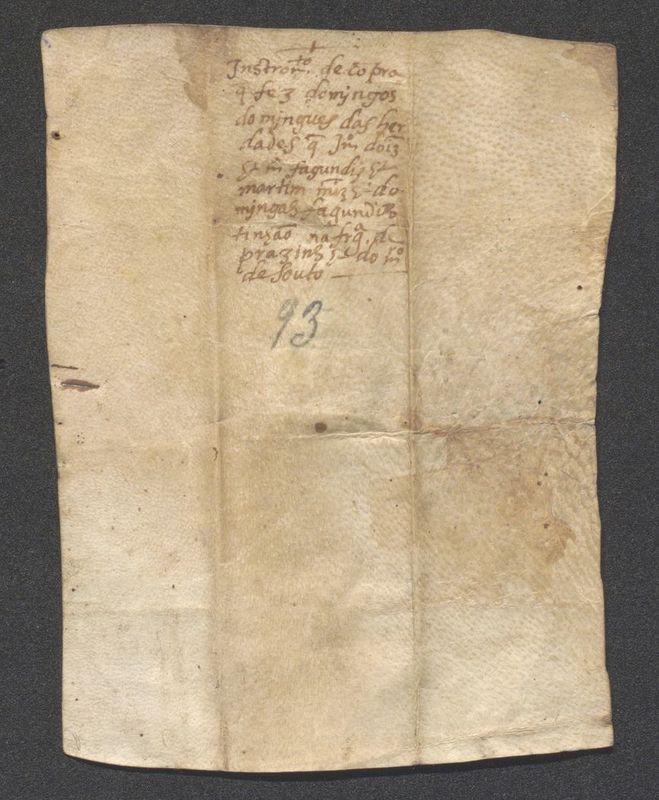 Instrom.to de copra
q̃ fez domingos
domingues das her
dades q̃
fagundiz
martim do
mingas fagundiz
tinhão na frg.a de
prazins do m.o
de souto —
93